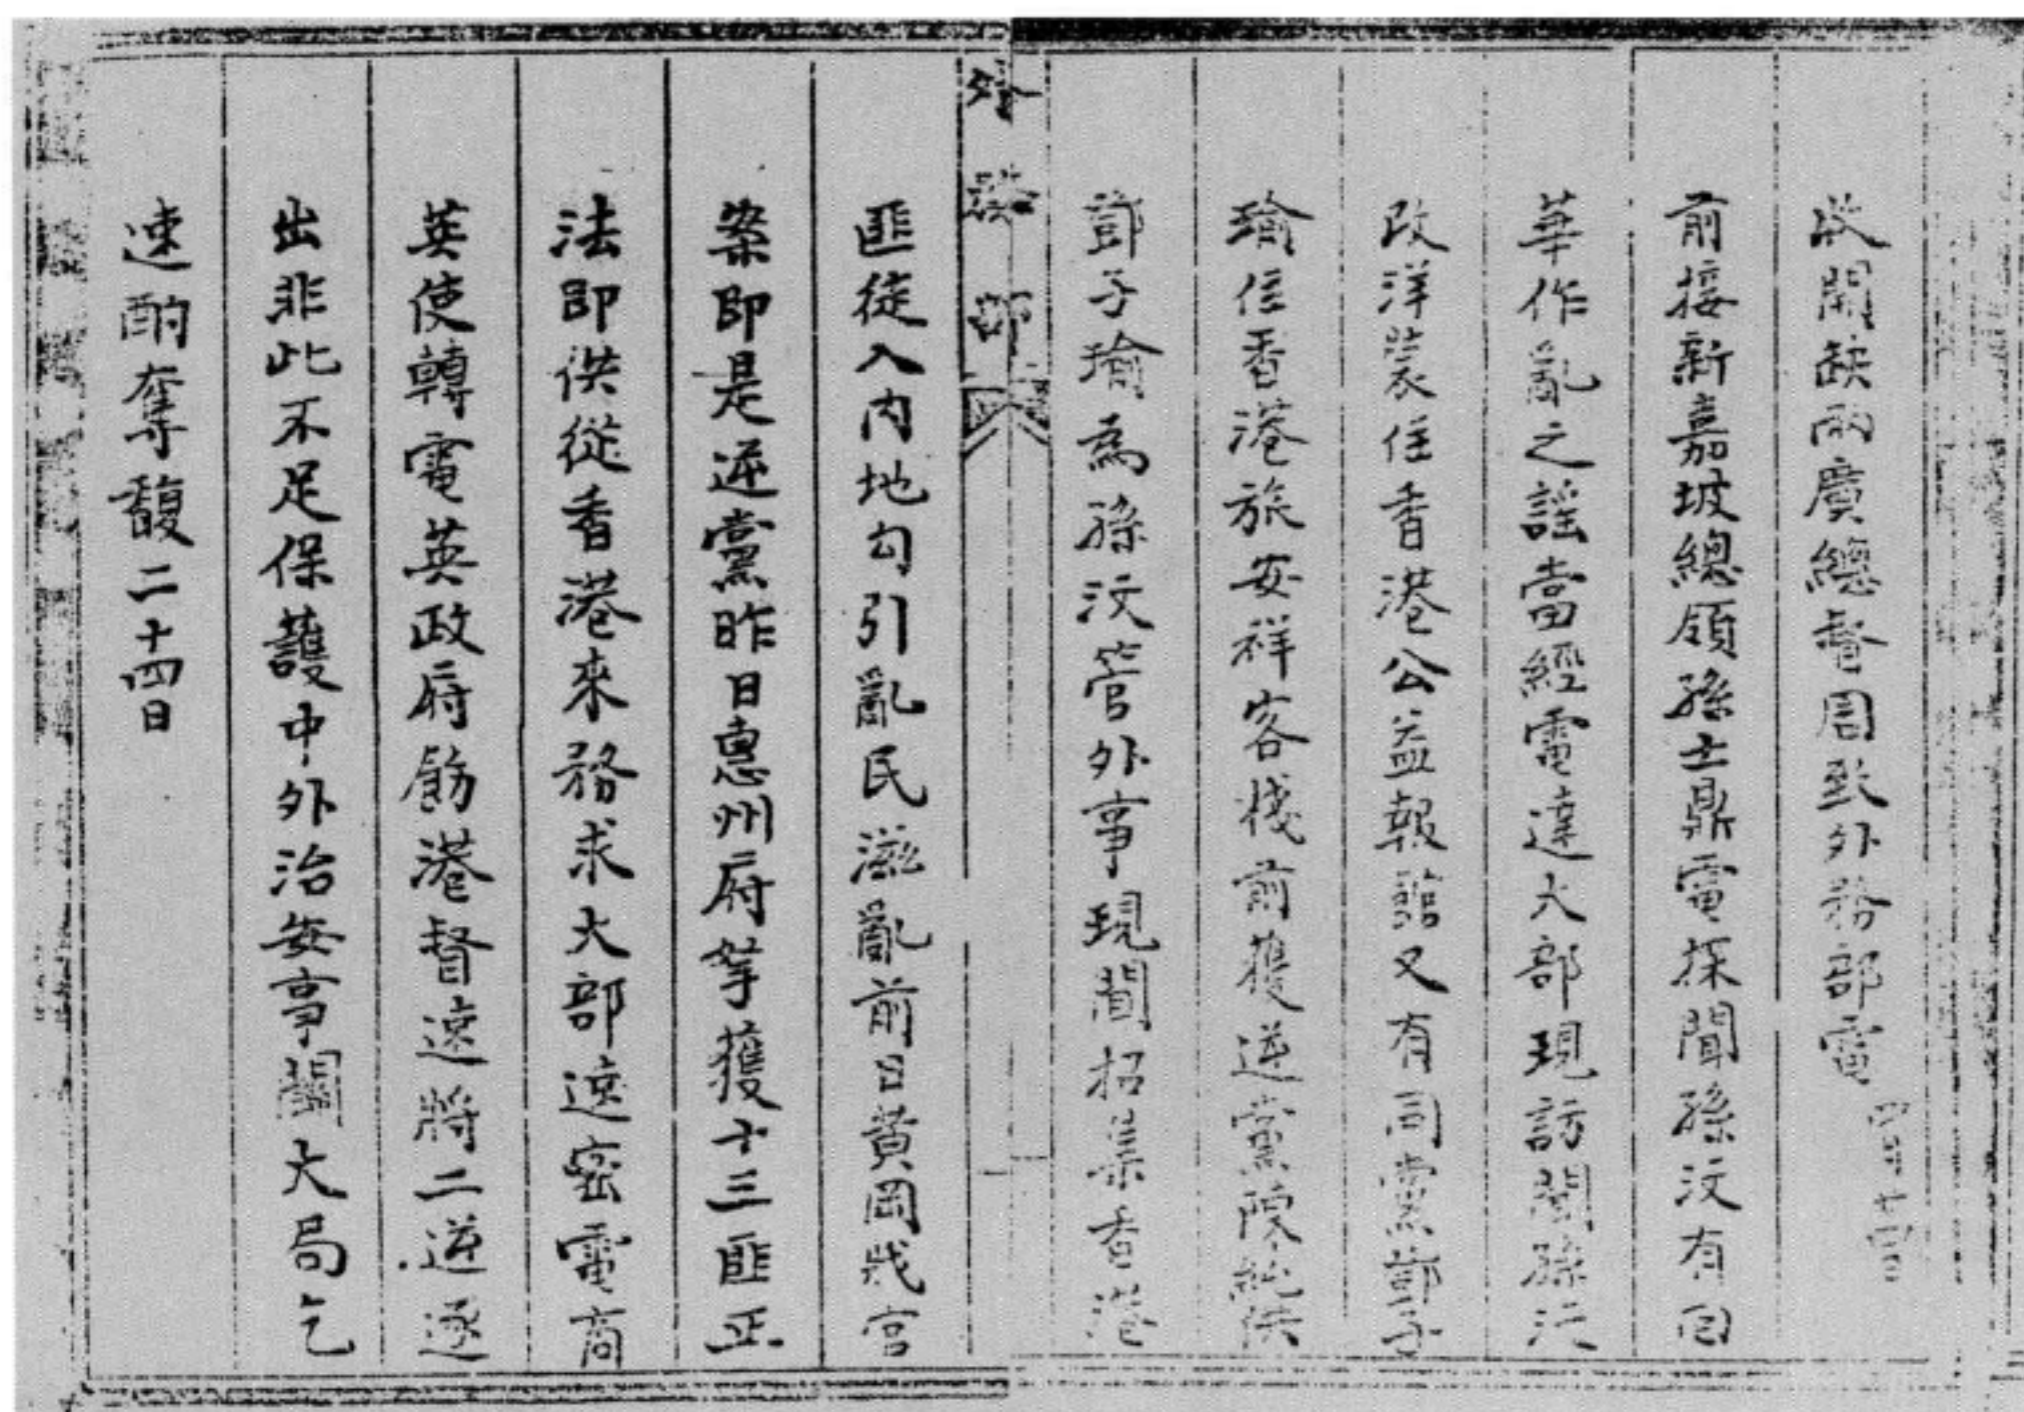 收開缺兩廣總督周致外務部電
四月十四日
前接新嘉坡總領孫士鼎電探聞孫汶有回
華作亂之謠當經電達大部現訪聞孫汶
改洋裝住香港公益報館又有同黨鄧子
瑜住香港旅安祥客棧前獲逆黨陳純供
鄧子瑜為孫汶管外事現聞招集香港
外務部
匪徒入內地勾引亂民滋亂前日黃岡戕官
案即是逆黨昨日惠州府拏獲十三匪正
法即供從香港來務求大部速密電商
英使轉電英政府飭港督速將二逆逐
出非此不足保護中外治安事關大局乞
速酌奪馥二十四日